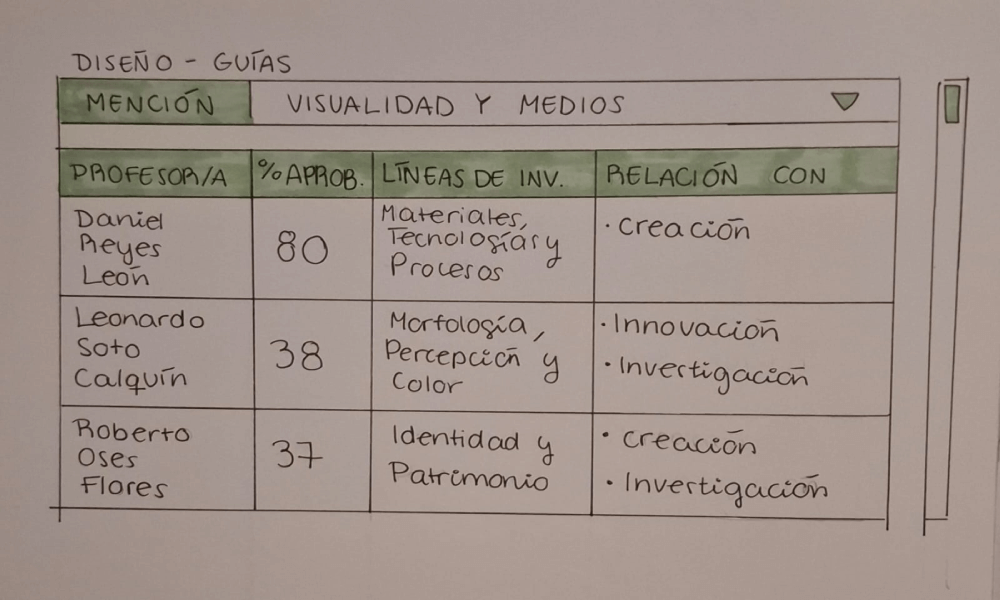 DISEÑO - GUÍAS
MENCIÓN VISUALIDAD Y MEDIOS
PROFESOR/A %APROB. LÍNEAS DE INV. RELACIÓN CON
Daniel
Reyes
León
80
Materiales,
Tecnologías y
Procesos
· Creación
Leonardo
Soto
Calquín
38
Morfología,
Percepción y
Color
· Innovación
· Investigación
Roberto
Oses
Flores
37
Identidad y
Patrimonio
· Creación
· Investigación